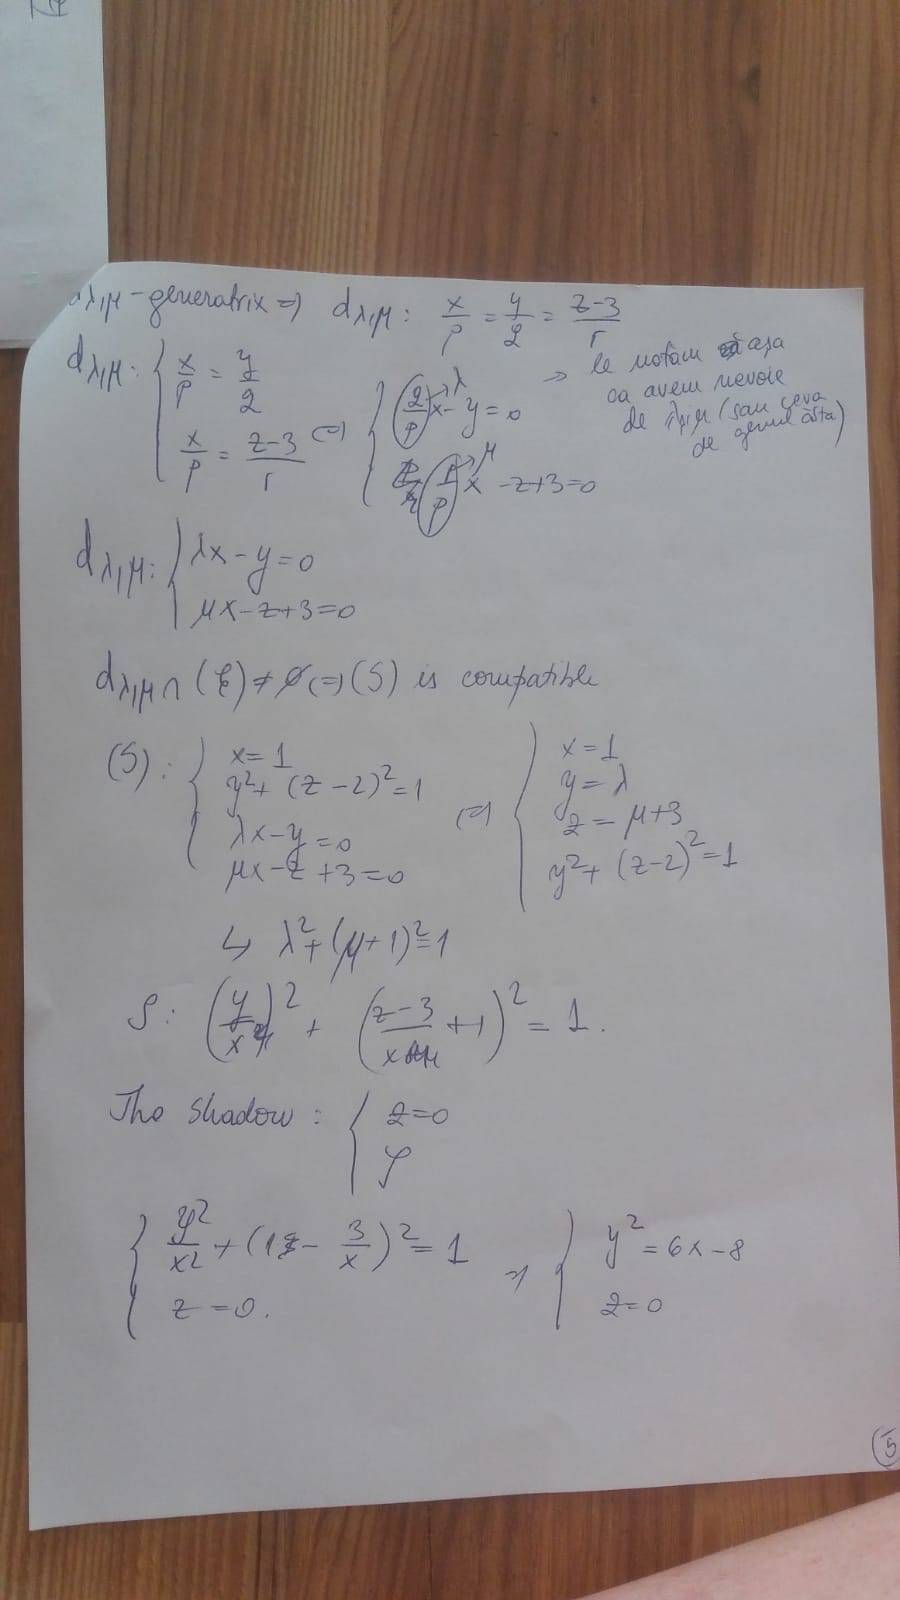 dλ,μ - generatrix => dλ,μ: x/p = y/q = (z-3)/r
dλ,μ: { x/p = y/q
x/p = (z-3)/r <=> { (q/p)→λ x - y = 0
(r/p)→μ x - z + 3 = 0
=> le notăm așa
ca avem nevoie
de λ, μ (sau ceva
de genul ăsta)
dλ,μ: { λx - y = 0
μx - z + 3 = 0
dλ,μ ∩ (C) ≠ ∅ <=> (S) is compatible
(S): { x = 1
y² + (z - 2)² = 1
λx - y = 0
μx - z + 3 = 0
<=> { x = 1
y = λ
z = μ + 3
y² + (z - 2)² = 1
↳ λ² + (μ + 1)² = 1
S: (y/x)² + ((z-3)/x + 1)² = 1.
The shadow: { z = 0
S
{ y²/x² + (1 - 3/x)² = 1
z = 0.
=> { y² = 6x - 8
z = 0
5